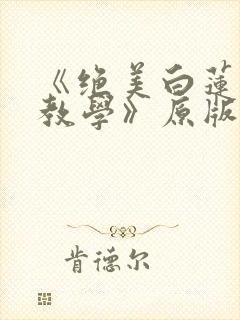 《绝美白莲
教学》原版
肯德尔